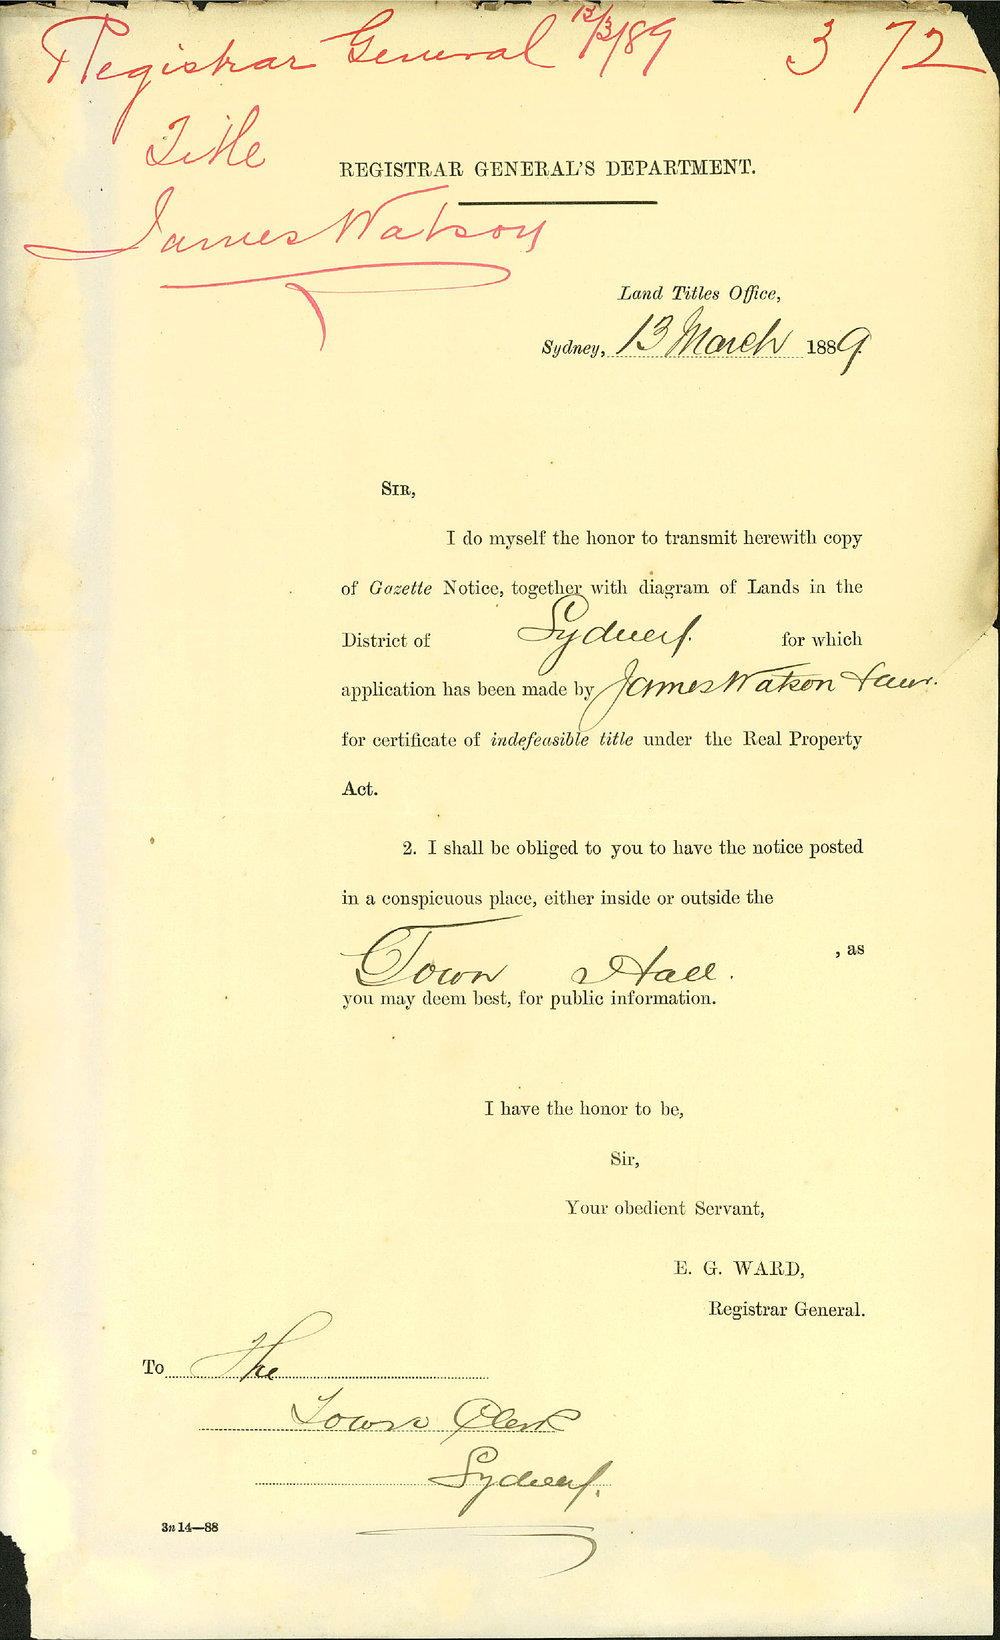 Registrar General 13/3/89 372
Title
James Watson
REGISTRAR GENERAL'S DEPARTMENT.
Land Titles Office,
Sydney, 13 March 1889.
SIR,
I do myself the honor to transmit herewith copy
of Gazette Notice, together with diagram of Lands in the
District of Sydney. for which
application has been made by James Watson
for certificate of indefeasible title under the Real Property
Act.
2. I shall be obliged to you to have the notice posted
in a conspicuous place, either inside or outside the
Town Hall. , as
you may deem best, for public information.
I have the honor to be,
Sir,
Your obedient Servant,
E. G. WARD,
Registrar General.
To The
Town Clerk
Sydney.
3n 14—88